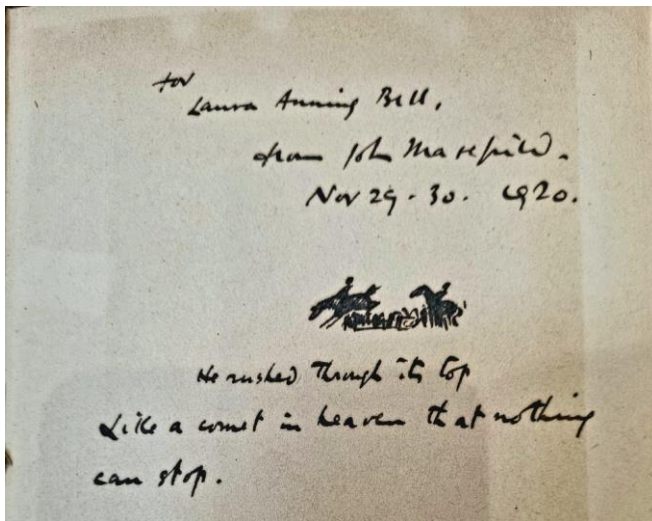 for
Laura Anning Bell,
from John Masefield.
Nov 29. 30. 1920.
He rushed through its top
Like a comet in heaven that nothing
can stop.